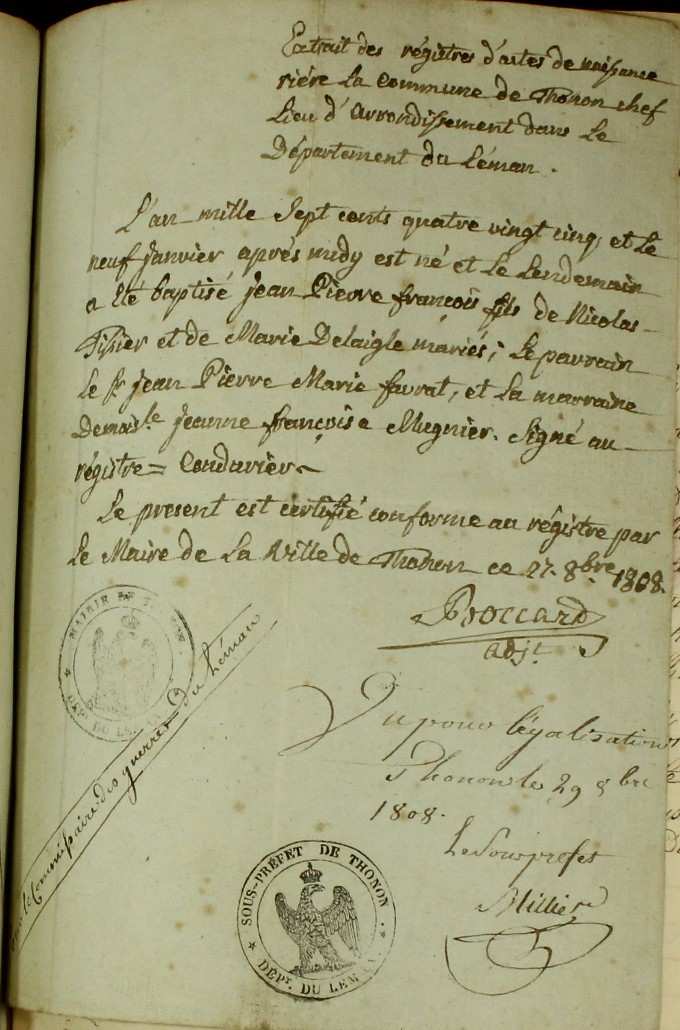 Extrait des régistres d'actes de naissance
riére La Commune de Thonon chef
Lieu d'arrondissement dans Le
Département du Léman.
L'an mille Sept cents quatre vingt cinq, et Le
neuf janvier aprés midy est né et Le Lendemain
a été baptisé jean Pierre françois fils de Nicolas
et de Marie Delaigle mariés; Le parrain
Le Sr jean Pierre Marie favrat, et La marraine
Demais.le jeanne françoise Mugnier. Signé au
régistre = Condurier
Le present est certifié conforme au régistre par
Le Maire de La Ville de Thonon ce 27. 8.bre 1808.
Boccard
adj.t
MAIRIE DE THONON
DÉP.T DU LÉMAN
Vu par le Commissaire des guerres du Léman
Vu pour légalisation
Thonon le 29 8bre
1808.
Le Sousprefet
SOUS-PRÉFET DE THONON
DÉP.T DU LÉMAN